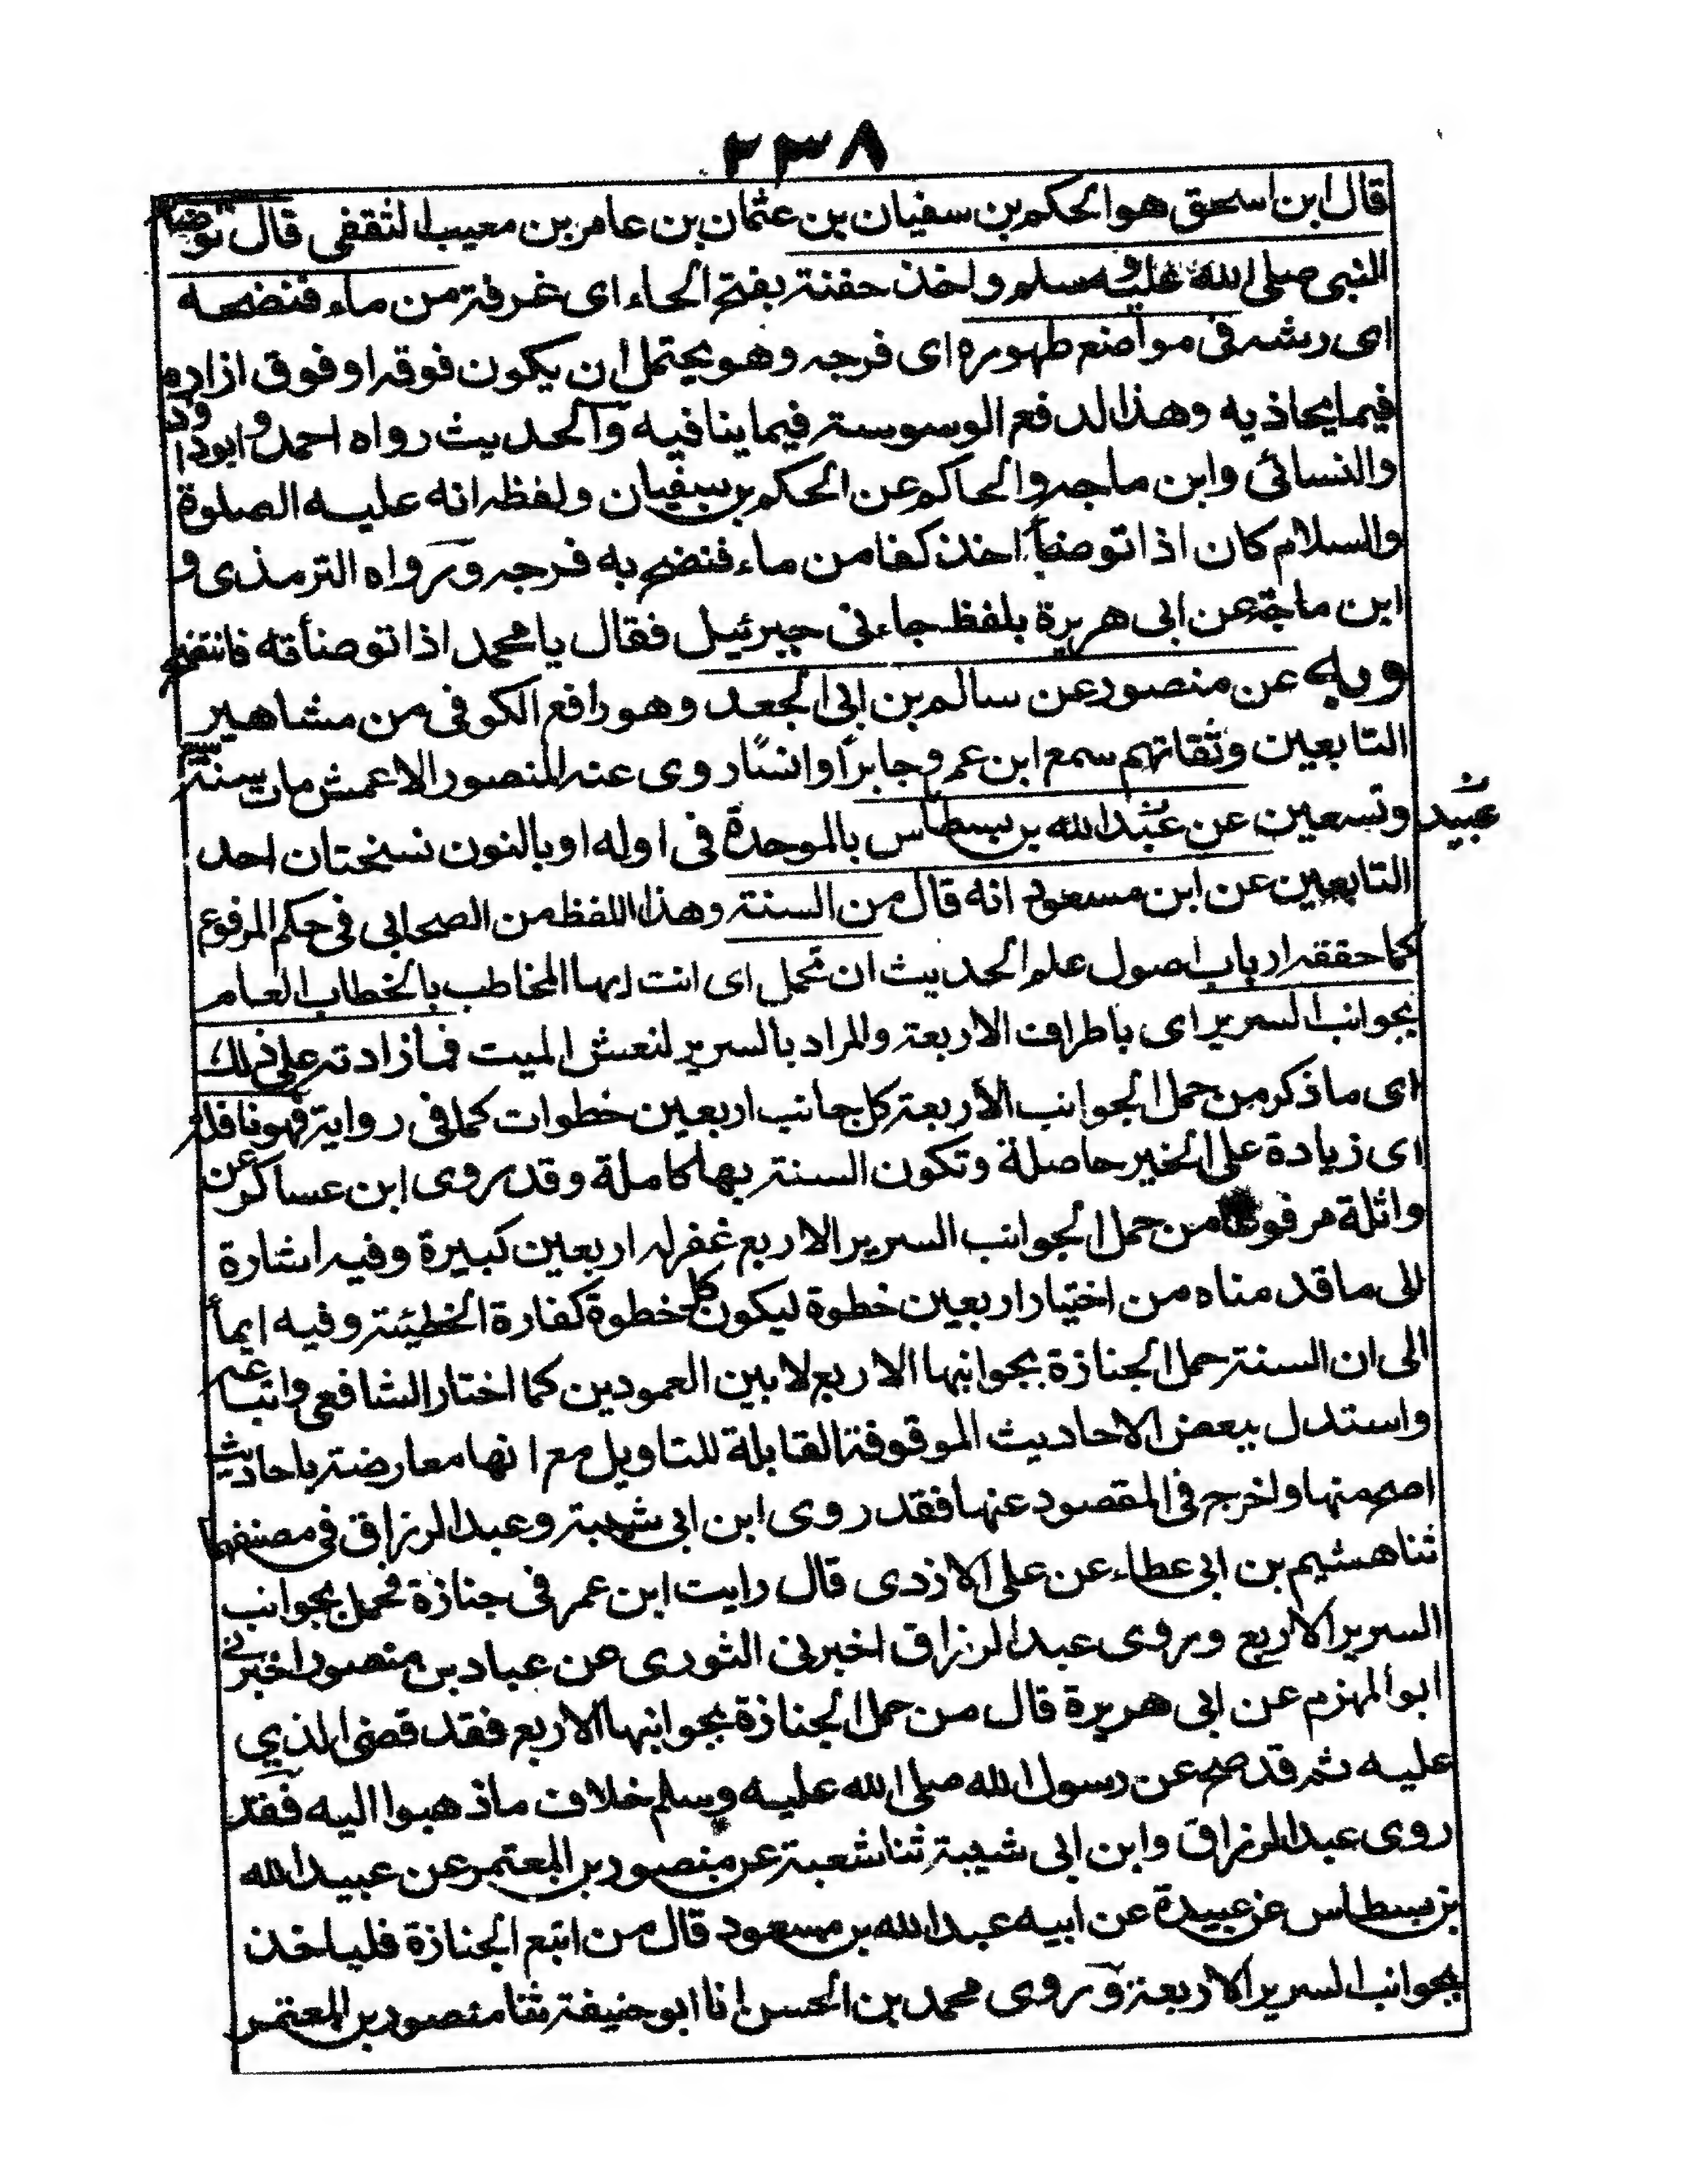 ٢٣٨
قال ابن اسحق هو الحكم بن سفيان بن عثمان بن عامر بن معيب الثقفى قال توضأ
النبى صلى الله عليه وسلم واخذ حفنة بفتح الحاء اى غرفة من ماء فنضحه
اى رشه فى مواضع طهوره اى فرجه وهو يحتمل ان يكون فوقه او فوق ازاره
فيما يحاذيه وهذا لدفع الوسوسة فيما ينافيه والحديث رواه احمد وابوداود
والنسائى وابن ماجه والحاكم عن الحكم بن سفيان ولفظه انه عليه الصلوة
والسلام كان اذا توضأ اخذ كفا من ماء فنضح به فرجه ورواه الترمذى و
ابن ماجة عن ابى هريرة بلفظ جاءنى جبرئيل فقال يا محمد اذا توضأ قه فانتضح
وبه عن منصور عن سالم بن ابى الجعد وهو رافع الكوفى من مشاهير
التابعين وثقاتهم سمع ابن عمر وجابرا وانسا روى عنه المنصور الاعمش مات سنة سبع
وتسعين عن عبد الله بن بسطاس بالموحدة فى اوله او بالنون نسختان احد
عبيد
التابعين عن ابن مسعود انه قال من السنة وهذا اللفظ من الصحابى فى حكم المرفوع
كما حققه ارباب اصول علم الحديث ان تحمل اى انت ايها المخاطب بالخطاب العام
بجوانب السرير اى باطراف الاربعة والمراد بالسرير لنعش الميت فما زادته على ذلك
اى ما ذكر من حمل الجوانب الأربعة كل جانب اربعين خطوات كما فى رواية فهو نافلة
اى زيادة على الخير حاصلة وتكون السنة بها كاملة وقد روى ابن عساكر عن
واثلة مرفوعا من حمل الجوانب السرير الاربع غفر له اربعين كبيرة وفيه اشارة
الى ما قدمناه من اختيار اربعين خطوة ليكون كل خطوة كفارة الخطيئة وفيه ايمأ
الى ان السنة حمل الجنازة بجوانبها الاربع لا بين العمودين كما اختار الشافعى واتباعه
واستدل ببعض الاحاديث الموقوفة القابلة للتاويل مع انها معارضة باحاديث
اصح منها واخرج فى المقصود عنها فقد روى ابن ابى شيبة وعبد الرزاق فى مصنفهما
ثنا هشيم بن ابى عطاء عن على الازدى قال رايت ابن عمر فى جنازة فحمل بجوانب
السرير الاربع وروى عبد الرزاق اخبرنى الثورى عن عباد بن منصور اخبرنى
ابو المهزم عن ابى هريرة قال من حمل الجنازة بجوانبها الاربع فقد قضى الذي
عليه ثم قد صح عن رسول الله صلى الله عليه وسلم خلاف ما ذهبوا اليه فقد
روى عبد الرزاق وابن ابى شيبة ثنا شعبة عن منصور بن المعتمر عن عبيد الله
بن بسطاس عن عبيدة عن ابيه عبد الله بن مسعود قال من اتبع الجنازة فلياخذ
بجوانب السرير الاربعة وروى محمد بن الحسن انا ابو حنيفة ثنا منصور بن المعتمر